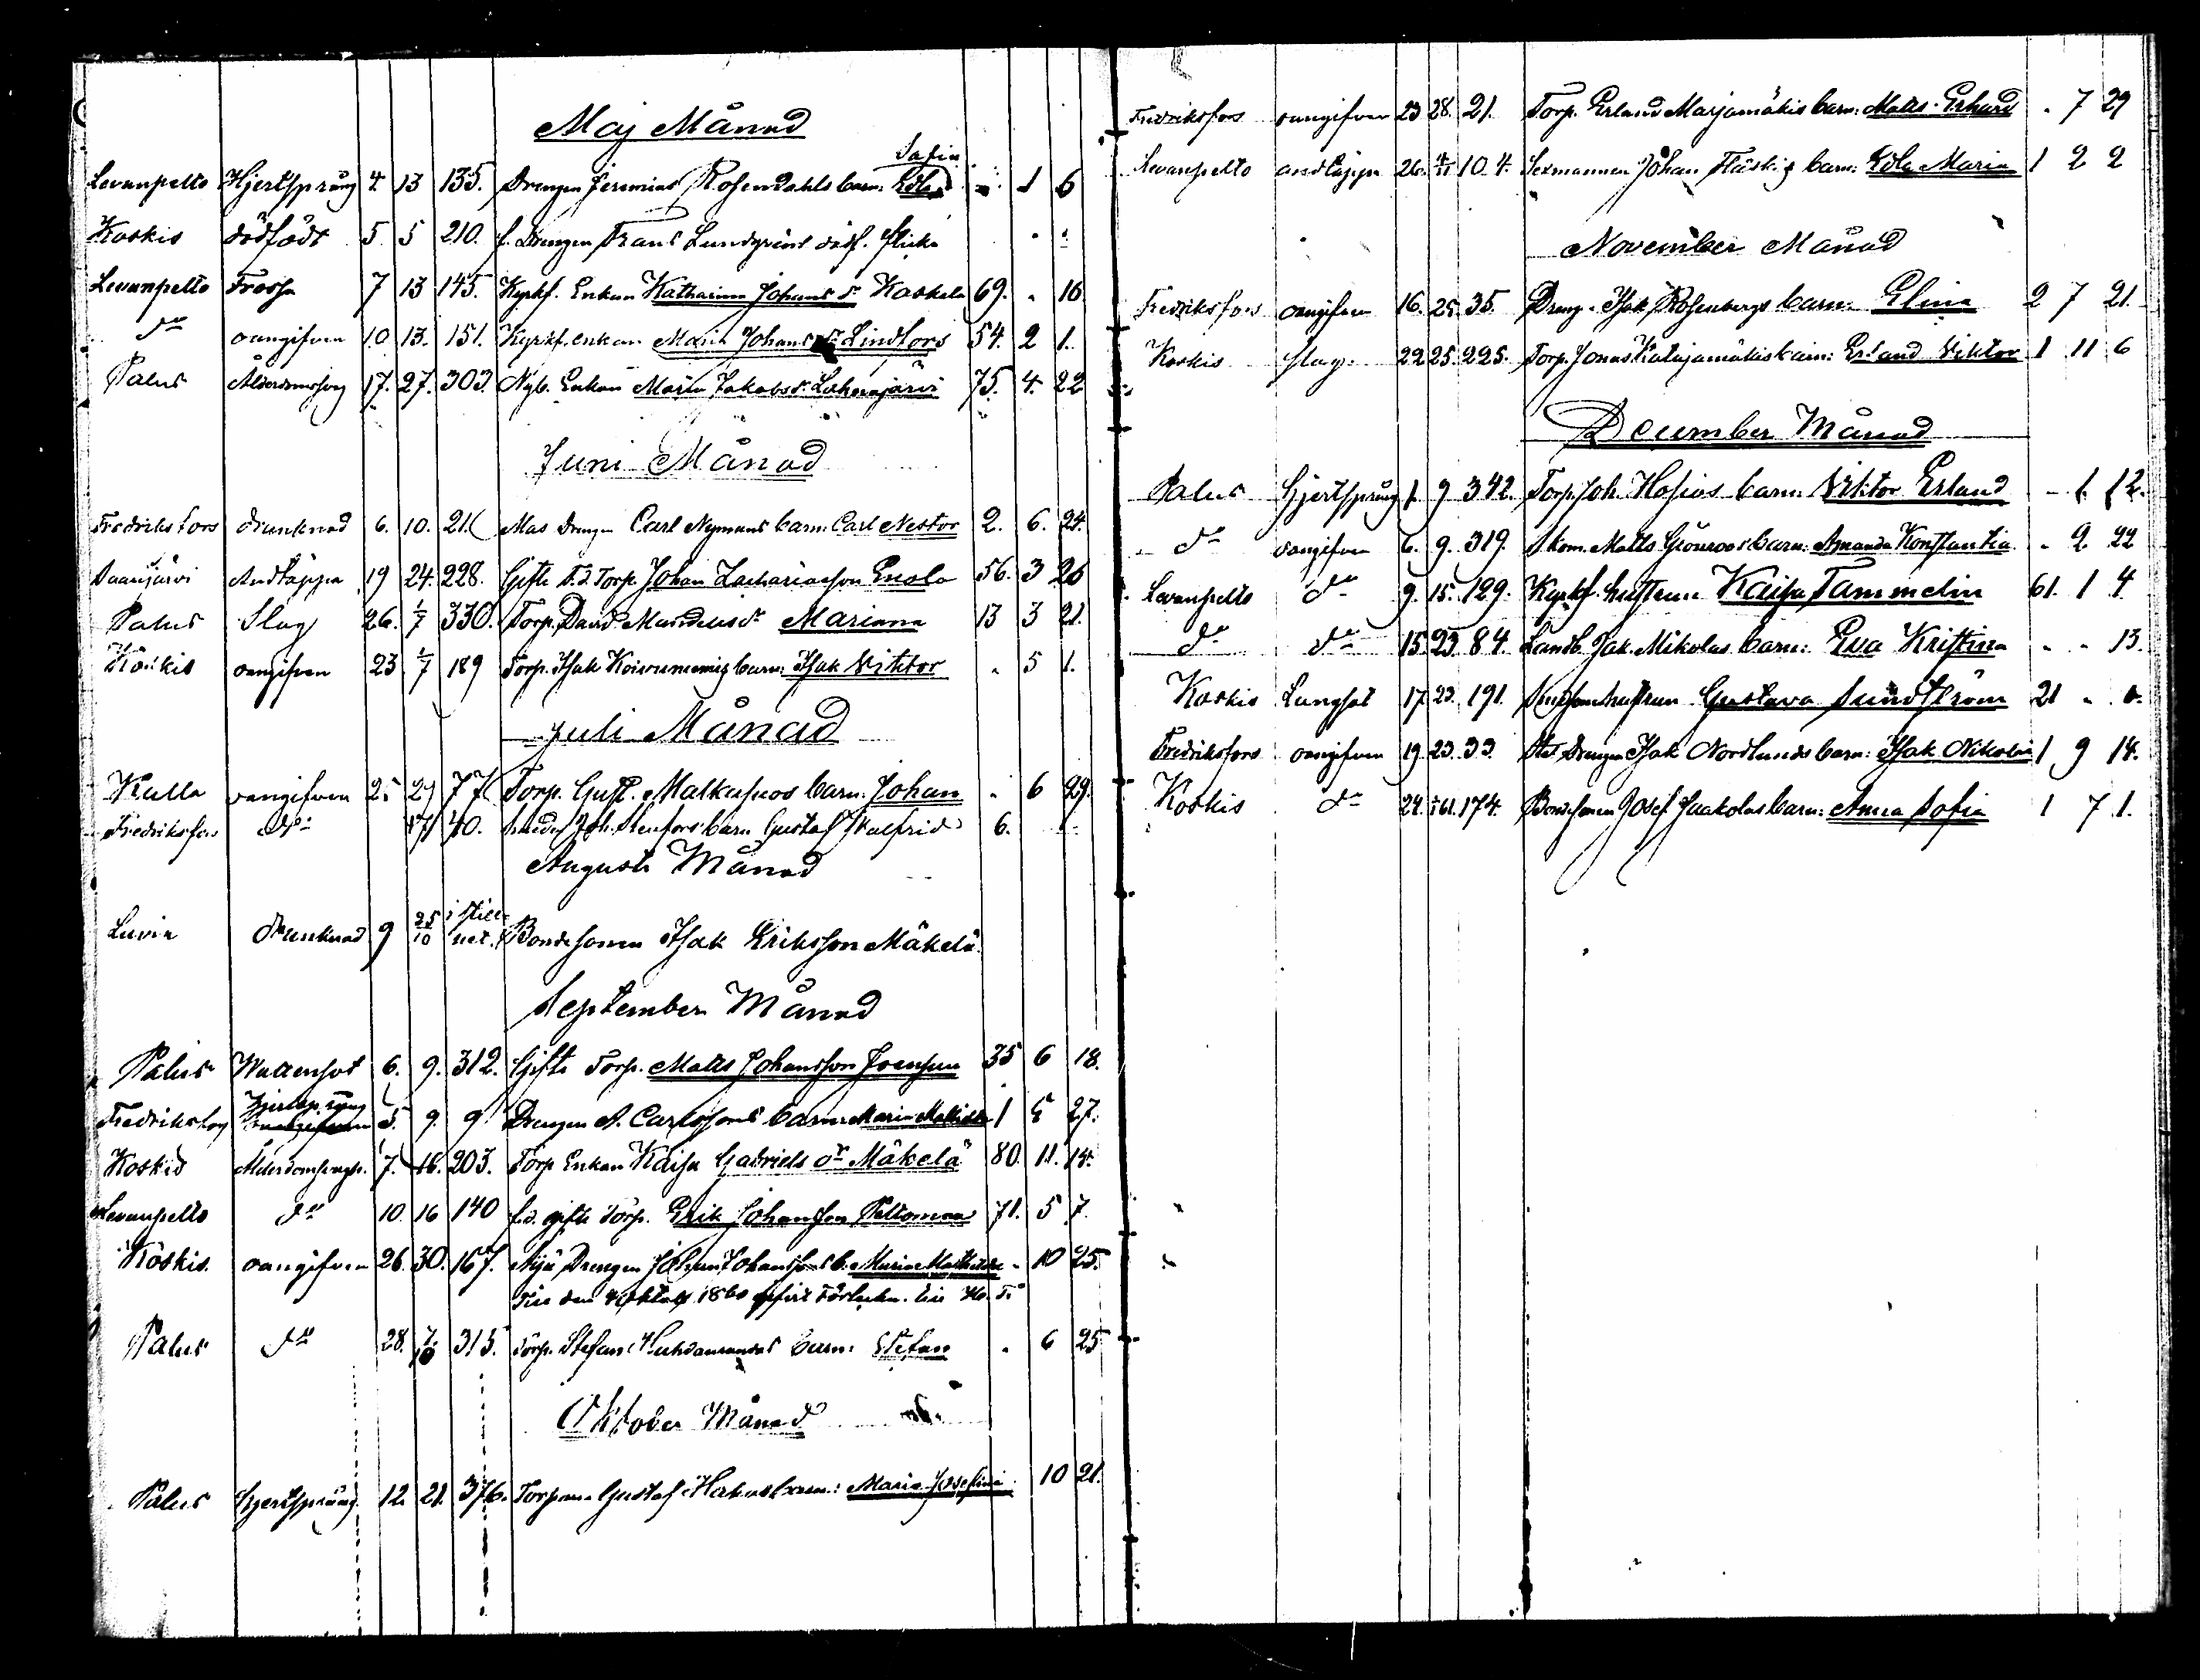 Maj Månad
Sofia
Levanpelto Hjertsprång 4. 13 135. Drengen Jeremias Rosendahls barn: Edla " 1 6
Koskis dödfödt 5 5 210. f. Drengen Frans Lundgréns dödf. flicka
Levanpelto Frossa 7 13 145. Kyrkf. Enkan Katharina Johans dr Koskela 69. " 16
do oangifven 10 13. 151. Kyrkf. enkan Maria Johans dr Lindfors 54. 2 1.
Palus Ålderdomsbrg 17. 27. 303. Nyb. Enkan Maria Jakobs dr Lahnajärvi 75. 4. 22
Juni Månad
Fredriksfors drunknad 6. 10. 21 Mas Drengen Carl Nymans barn: Carl Nestor 2. 6. 24.
Saarijärvi Andtäppa 19 24. 228. Gifte F.d. Torp. Johan Zachariasson Enola 56. 3 26
Palus Slag 26. 1/7 330. Torp. David dr Mariana 13 3 21.
Koskis oangifven 23 1/7 189 Torp. Isak Koivuniemis barn: Isak Viktor " 5 1.
Juli Månad
Kulla oangifven 25 29 77 Torp. Gust. barn. Johan " 6 29.
Fredriksfors do 17 40. Joh. Stenfors barn Gustaf Walfrid 6.
Augusti Månad
Luvia drunknad 9 25/10 Bondesonen Isak Eriksson Mäkelä
September Månad
Palus Wattensot 6. 9. 312. Gifte Torp. Matts Johansson 35 6 18.
Fredriksfors Hjertsprång 5 9. 9 Drengen A. Carlssons barn: Maria Mathilda 1 5 27.
Koskis Ålderdomsbrgh. 7. 16. 203. Torp Enkan Kaisa Gabriels dr Mäkelä 80. 11. 14.
Levanpelto do 10. 16 140 f.d. gifte Torp. Erik Johansson Peltomaa 71. 5 7.
Koskis. oangifven 26. 30. 167. Drengen Johan Johanssons b. Maria Mathilda " 10 25.
Palus do 28. 7/10 315. Torp. Stefan barn: Stefan " 6 25
Oktober Månad
Palus Hjertsprång 12. 21. 376. Torpare Gustaf barn: Maria Josefina 10 21.
Fredriksfors oangifven 23 28. 21. Torp. Erland Marjamäkis barn: Matts Erhard " 7 29
Levanpelto andtäppa 26. 4/11 104. Sexmannen Johan barn: Edla Maria 1 2 2
November Månad
Fredriksfors oangifven 16. 25. 35. Dreng. Isak Rosenbergs barn: Elina 2 7 21.
Koskis slag. 22 25. 225. Torp. Jonas Katajamäkis barn: Erland Viktor 1 11 6
December Månad
Palus Hjertsprång 1. 9. 342. Torp. Joh. barn: Viktor Erland - 1. 12.
do oangifven 6. 9. 319. Skom. Matts Grönroos barn: Amanda Konstantia " 2 22
Levanpelto do 9. 15. 129. Kyrkf. hustrun Kaisa Tammelin 61. 1 4
do do 15 23 84. Landb. Jak. Mikolas barn: Eva Kristina " " 13.
Koskis Lungsot 17. 23. 191. hustrun Gustava Sundström 21 "
Fredriksfors oangifven 19. 23. 33. Drengen Isak Nordlunds barn: Isak Nikolai 1 9 14.
Koskis do 24. 174. Bondesonen Josef Jaakolas barn: Anna Sofia 1 7 1.